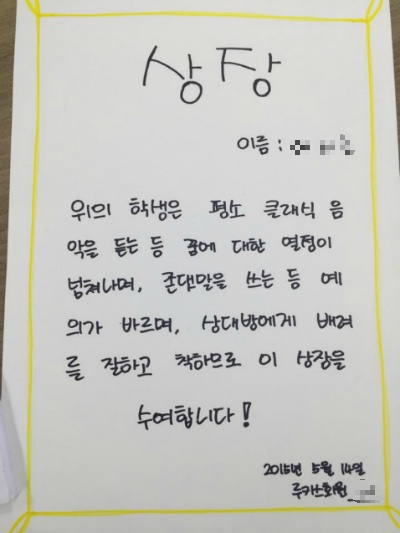 상장
이름 :
위의 학생은 평소 클래식 음
악을 듣는 등 꿈에 대한 열정이
넘쳐나며, 존댓말을 쓰는 등 예
의가 바르며, 상대방에게 배려
를 잘하고 착하므로 이 상장을
수여합니다!
2015년 5월 14일
루카스회원